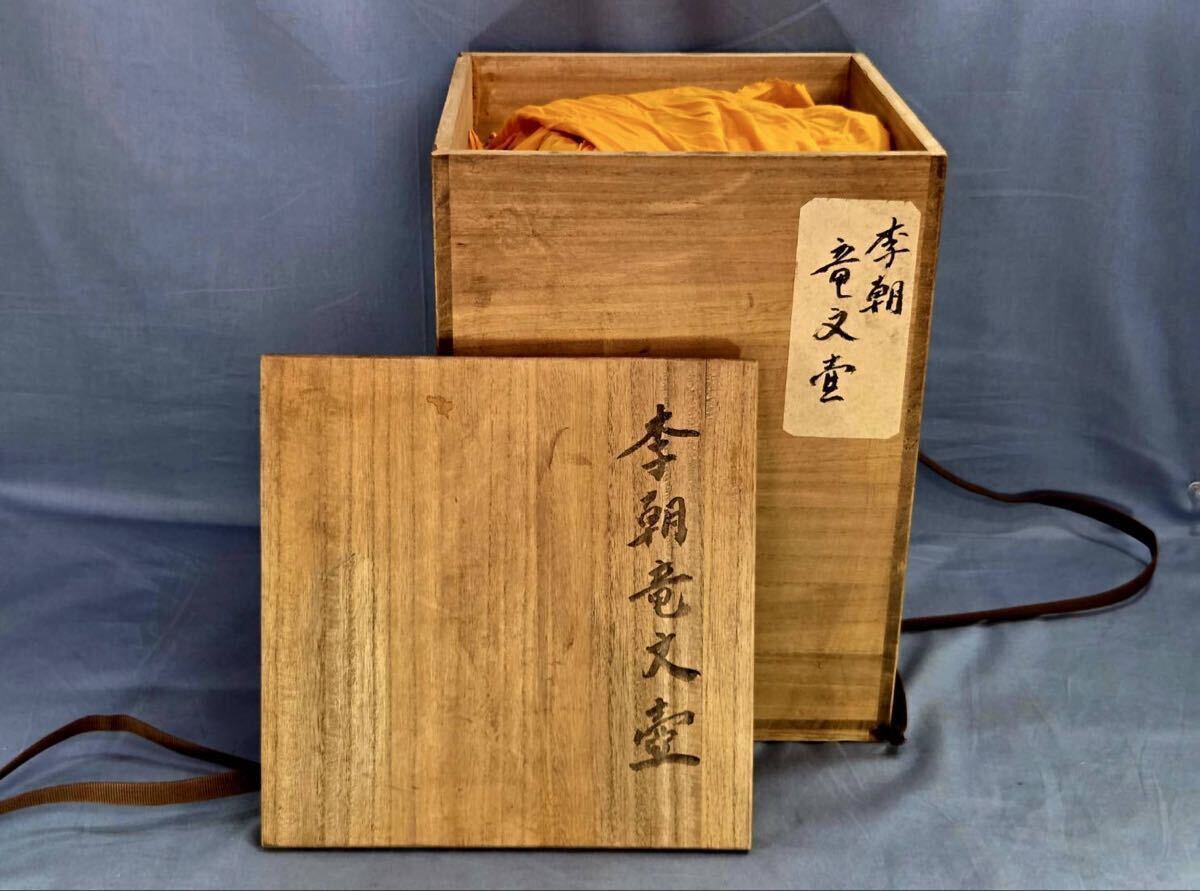 李朝
竜文壺
李朝竜文壺